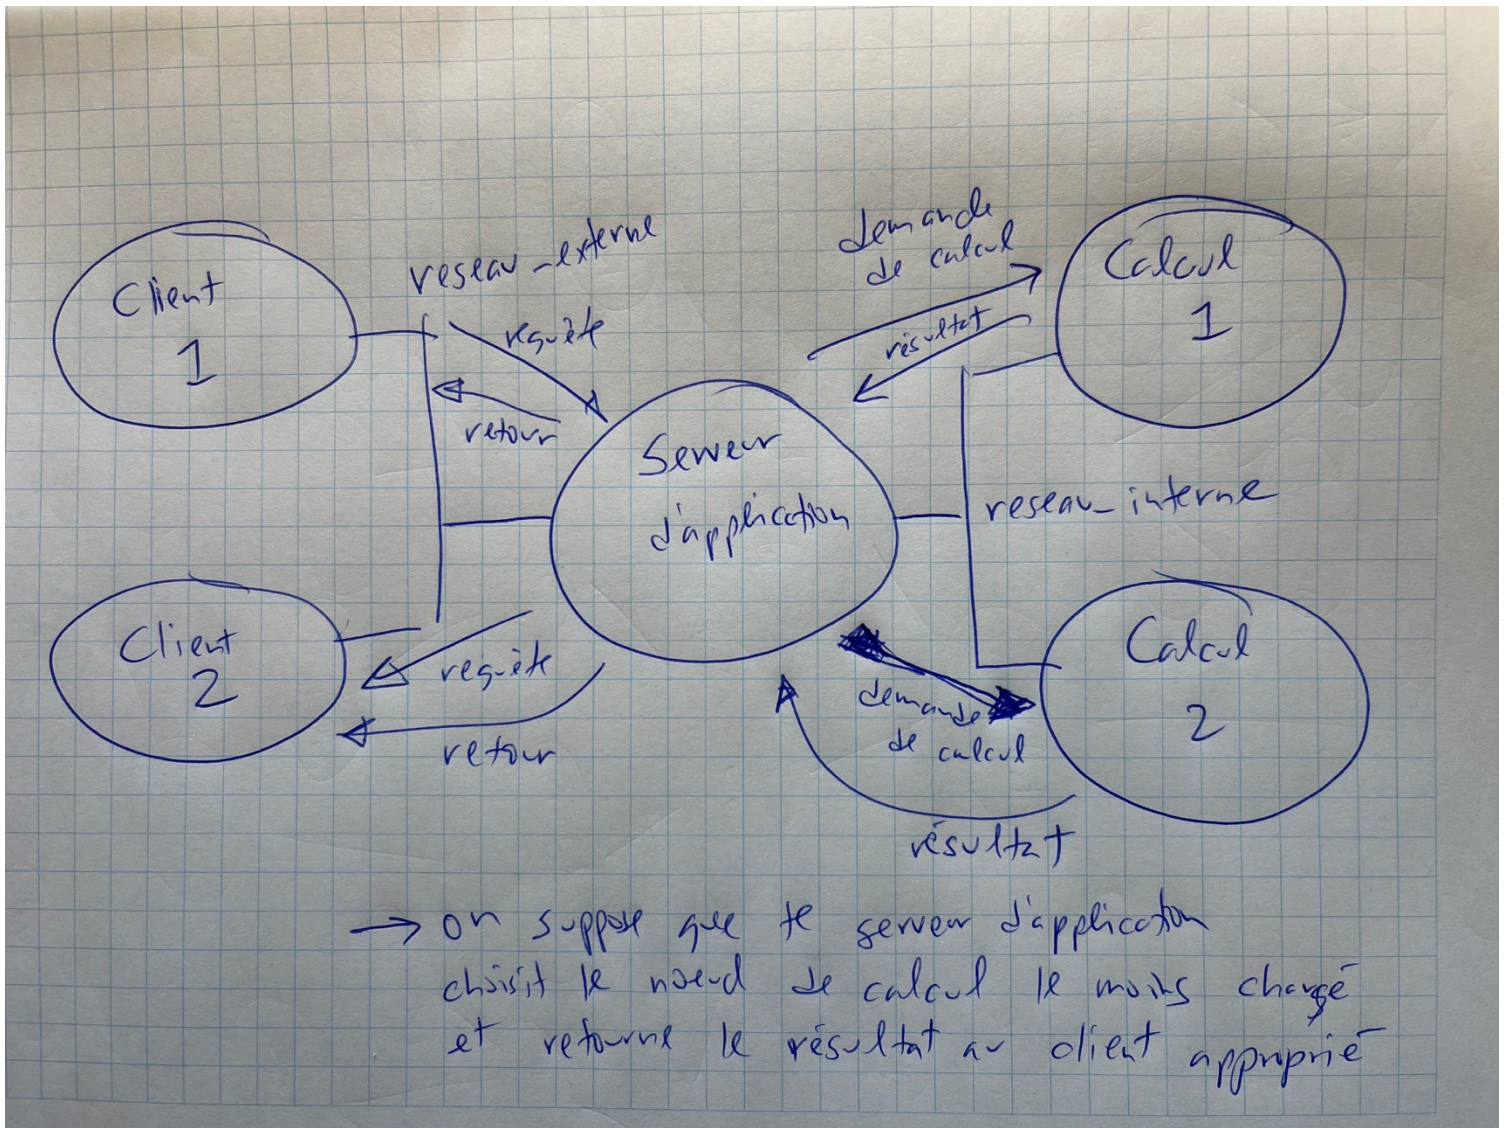 Client
1
reseau_externe
requête
retour
Serveur
d'application
demande
de calcul
résultat
Calcul
1
reseau_interne
Client
2
requête
retour
demande
de calcul
résultat
Calcul
2
→ on suppose que le serveur d'application
choisit le noeud de calcul le moins chargé
et retourne le résultat au client approprié